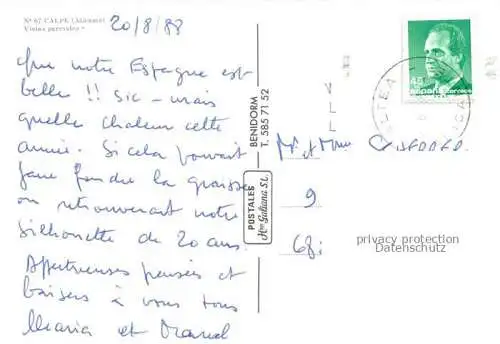 Nº 67 CALPE (Alicante)
Vistas parciales
20/8/88
Que notre Espagne est
belle !! sic - mais
quelle chaleur cette
année. Si cela pouvait
faire fondre la graisse
on retrouverait notre
silhouette de 20 ans.
Affectueuses pensées et
baisers à vous tous
Maria et
POSTALES
Hnos Galiana S.L.
BENIDORM
T. 585 71 52
45
España correos
ALTEA
Mr et Mme
9
68
privacy protection
Datenschutz